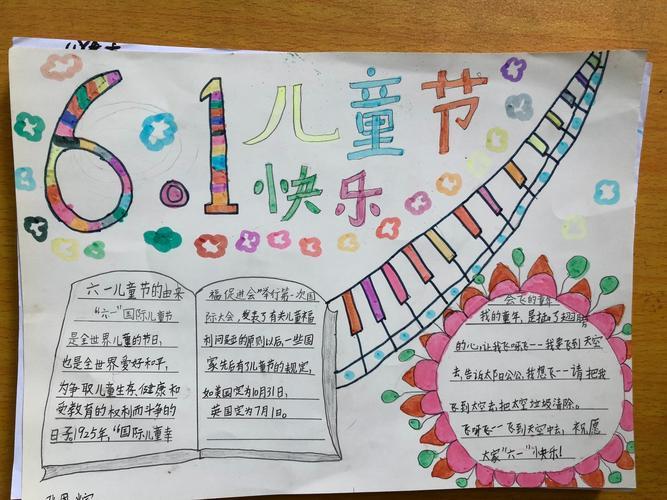 6.1儿童节
快乐
六一儿童节的由来
"六一"国际儿童节
是全世界儿童的节日,
也是全世界爱好和平,
为争取儿童生存、健康和
受教育的权利而斗争的
日子,1925年,"国际儿童幸
福促进会"举行第一次国
际大会,发表了有关儿童福
利问题的原则以后,一些国
家先后有了儿童节的规定,
如美国定为10月31日,
英国定为7月1日。
会飞的童年
我的童年,是插了翅膀
的心,让我飞呀飞——我要飞到天空
去,告诉太阳公公,我想飞——请把我
飞到太空去,把太空垃圾清除。
飞呀飞——飞到太空中去,祝愿
大家"六一"快乐!